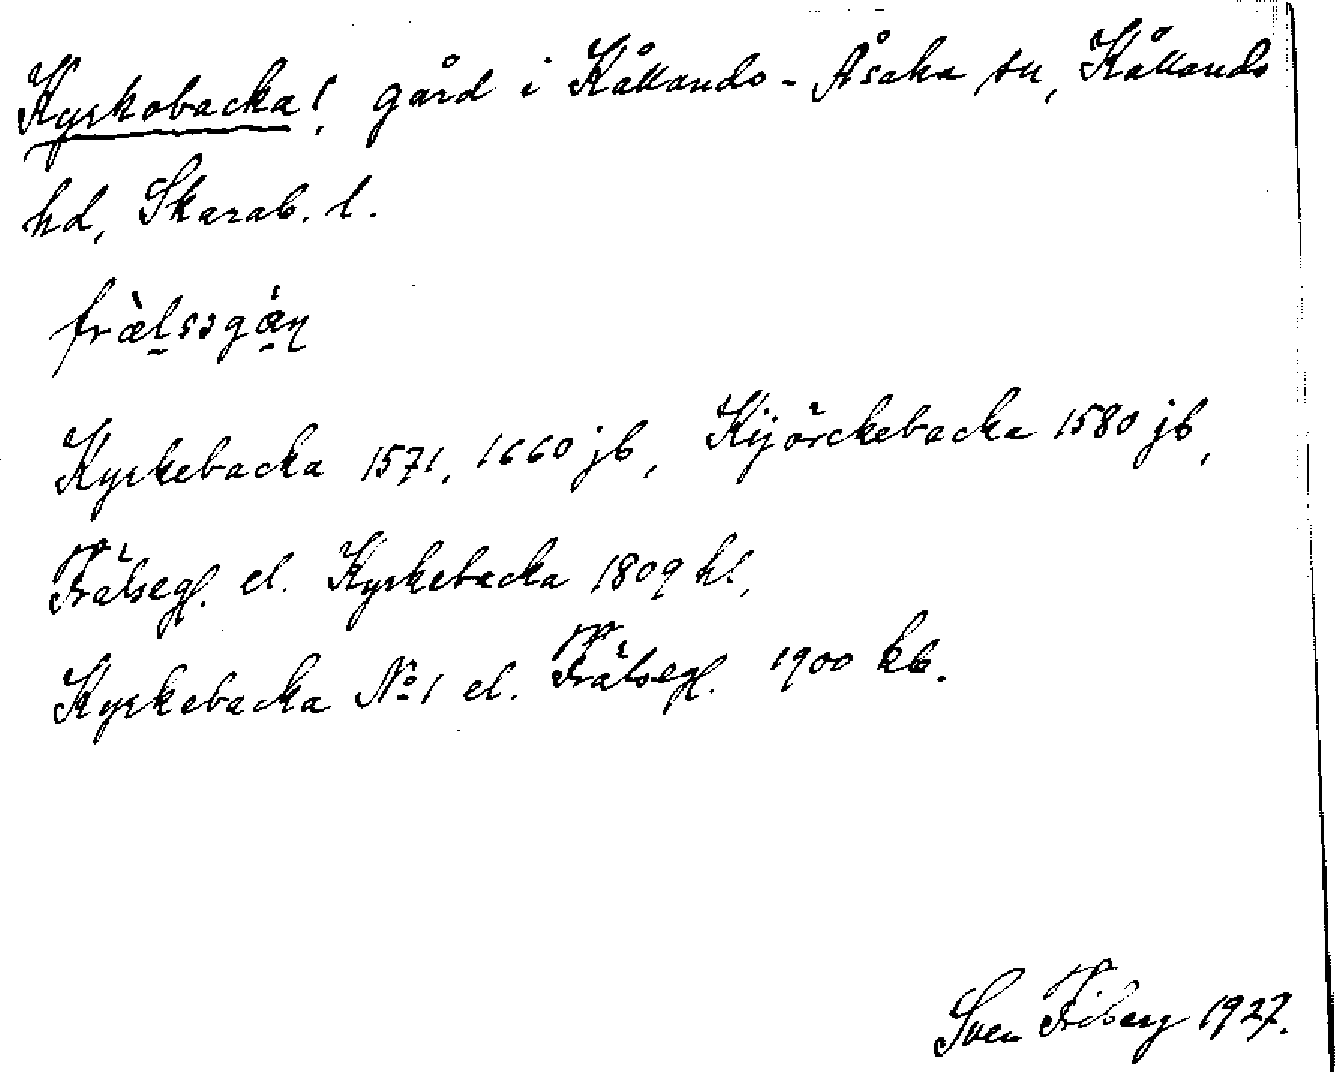 Kyrkobacka!, gård i Kållands-Åsaka sn, Kållands
hd, Skarab. l.
fræ̀lsəgǽṇ
Kyrkebacka 1571, 1660 jb, Kijörckebacka 1580 jb,
Frälsegl. el. Kyrkebacka 1809 hl,
Kyrkebacka No 1 el. Frälsegl. 1900 kb.
Sven Friberg 1927.